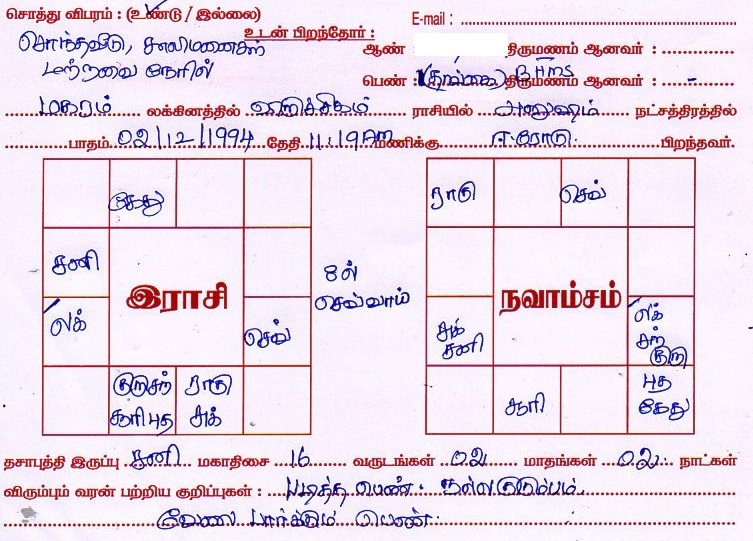 சொத்து விபரம் : (உண்டு / இல்லை) E-mail :
உடன் பிறந்தோர் :
சொந்தவீடு, காலிமனைகள் ஆண் திருமணம் ஆனவர் :
மற்றவை நேரில் பெண் : 1(தங்கை) திருமணம் ஆனவர் : BHMS -
மகரம் லக்கினத்தில் விருச்சிகம் ராசியில் அனுஷம் நட்சத்திரத்தில்
பாதம் 02/12/1994 தேதி 11:19AM மணிக்கு ஈரோடு பிறந்தவர்.
கேது
சனி
லக்
இராசி
செவ்
குரு சந்
சூரி புத
ராகு
சுக்
8ல்
செவ்வாய்
ராகு
செவ்
நவாம்சம்
சுக்
சனி
லக்
சந்
குரு
சூரி
புத
கேது
தசாபுத்தி இருப்பு சனி மகாதிசை 16 வருடங்கள் 02 மாதங்கள் 02 நாட்கள்
விரும்பும் வரன் பற்றிய குறிப்புகள் : படித்த பெண். நல்ல குடும்பம்.
வேலை பார்க்கும் பெண்.